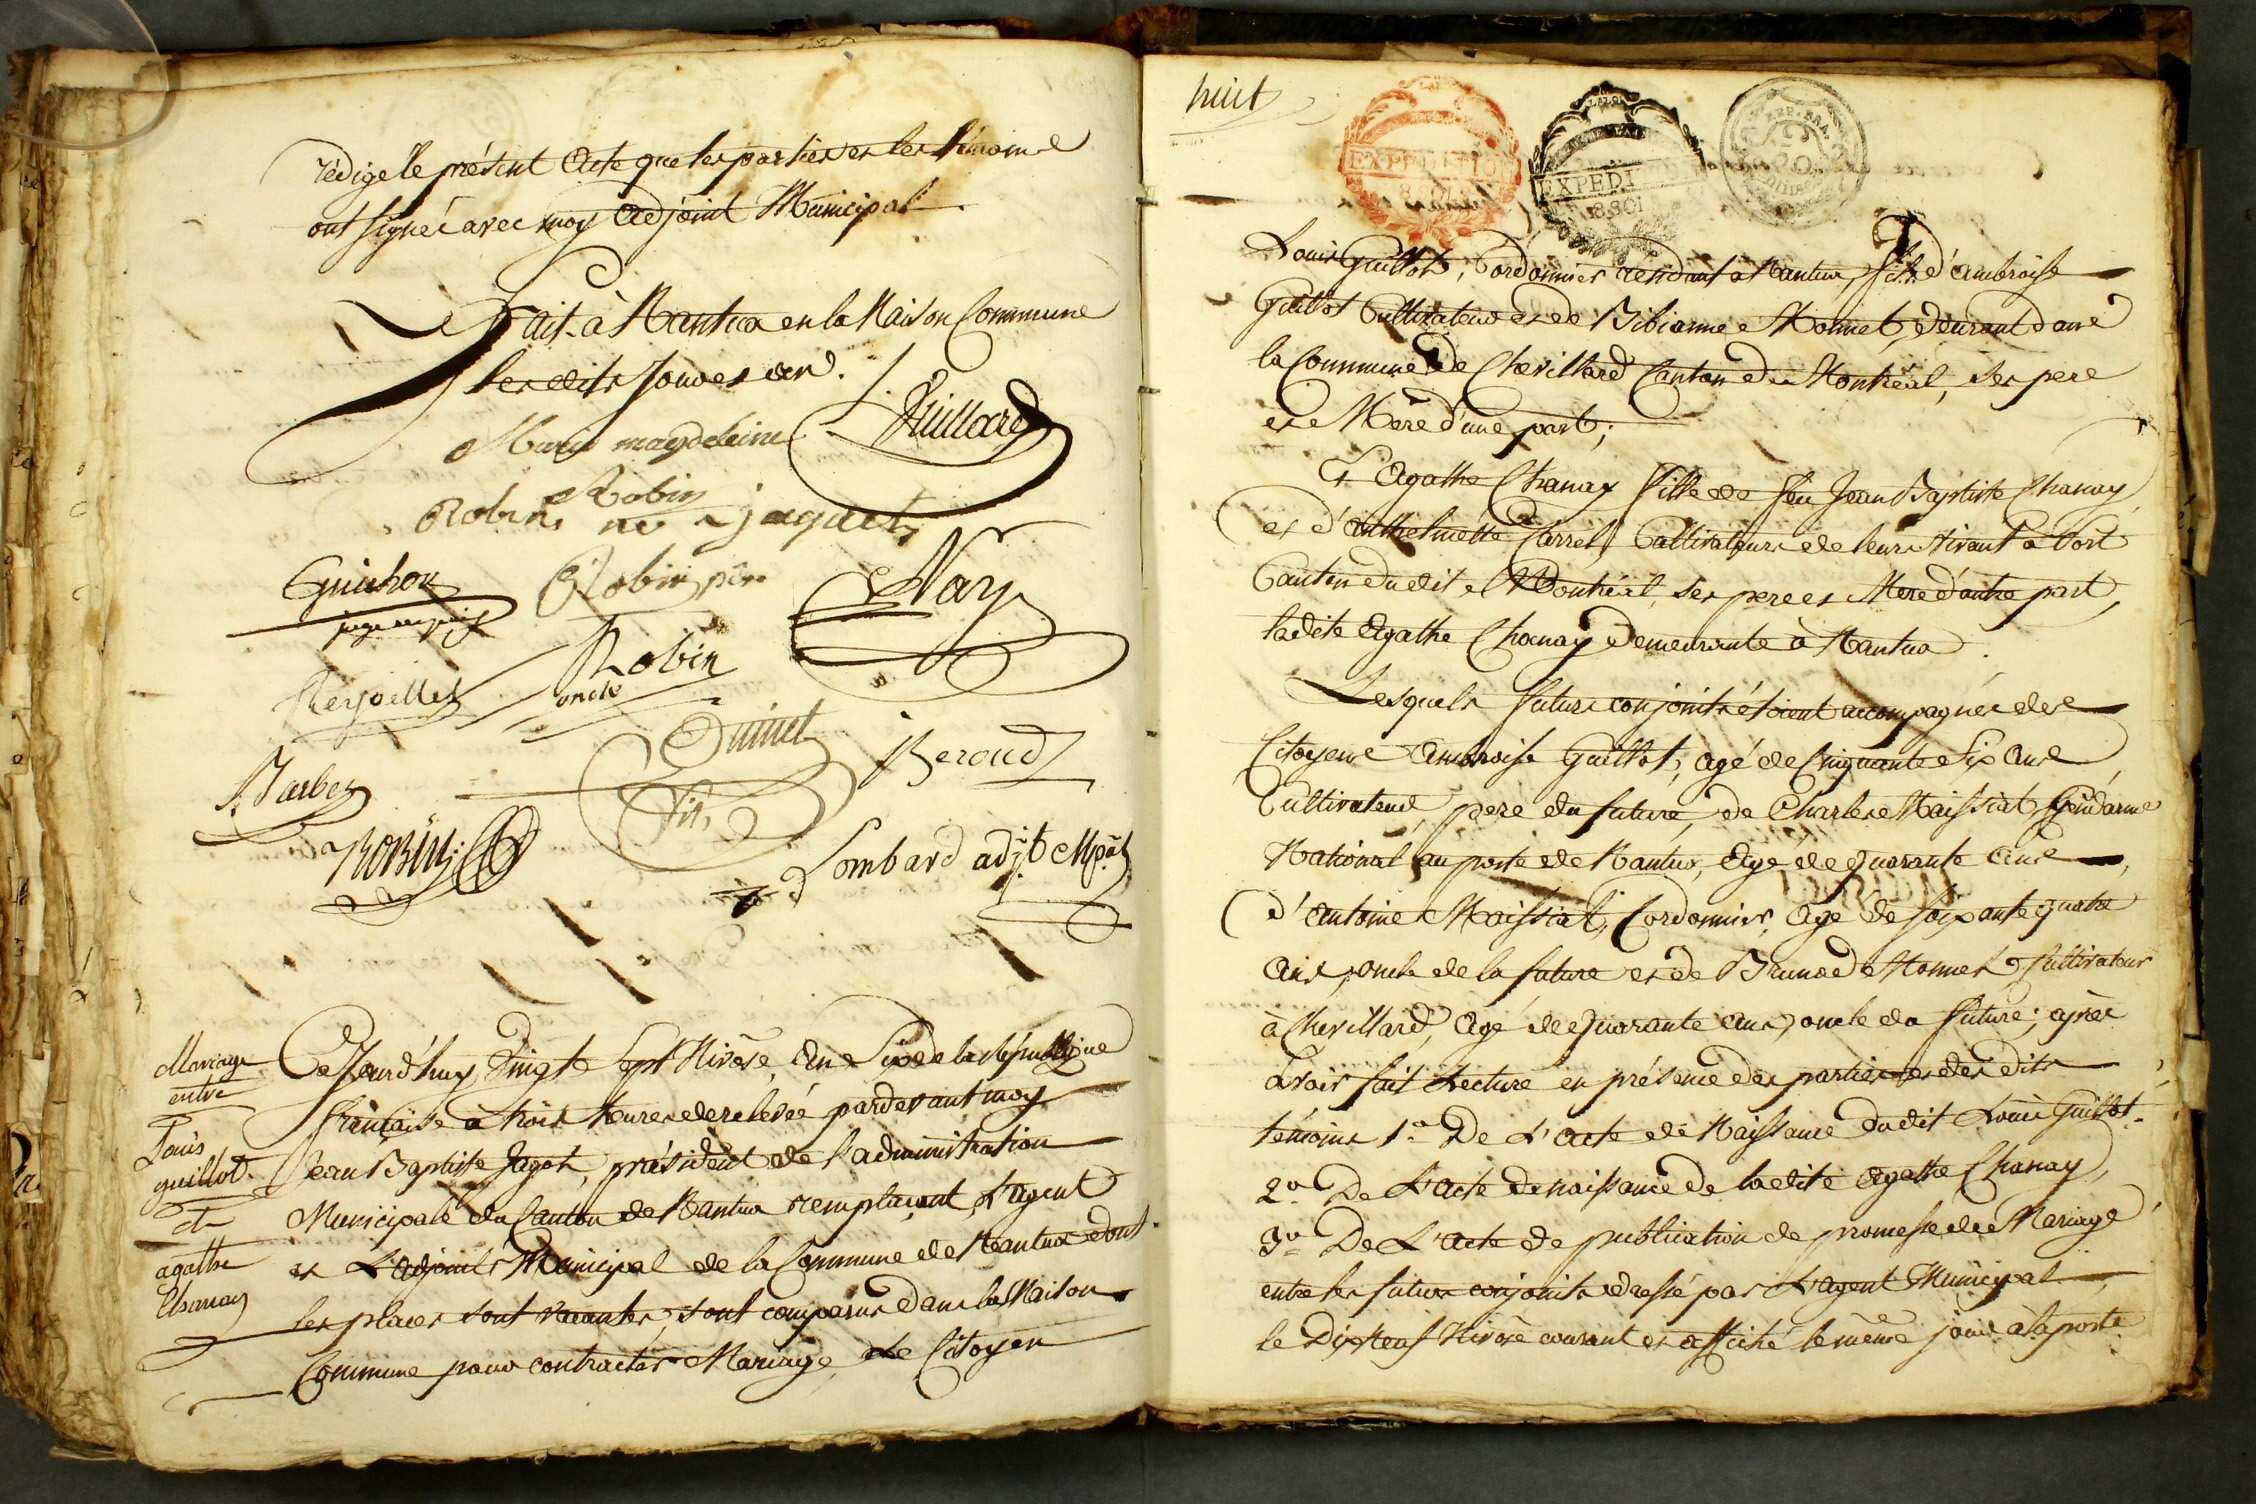 rédigé le présent acte que les parties et les témoins
ont signés avec moy adjoint Municipal
Fait à Nantua en la Maison Commune
les dits Jour et an.
Vuillard
Marie magdeleine
Robin
Robin née jaquet
Guichon
Robin père
Nay
Robin
oncle
Quinet
fils
Beroud
J. Barbe
ROBIN
Lombard adjt Mpal
Mariage
entre
Louis
guillot
et
agathe
Chanay
Cejourd'huy Vingt Sept Nivôse, an Six de la république
française à trois heures de relevée pardevant moy
Jean Baptiste Jagot, président de l'administration
Municipale du Canton de Nantua remplaçant L'agent
et L'adjoint Municipal de la Commune de Nantua dont
les places sont vacantes, sont comparus dans la Maison
Commune pour contracter Mariage, Le Citoyen
huit
EXPEDITION
EXPEDI
REP. FRA.
Louis Guillot, Cordonnier résidant à Nantua, fils d'ambroise
Guillot Cultivateur et de Bibianne Monnet, demeurant dans
la Commune de Chevillard Canton de Montréal, ses pere
et Mere d'une part;
Et Agathe Chanay fille de feu Jean Baptiste Chanay
et d'anthelmette Carrel, Cultivateurs de leurs vivant à Port
Canton dudit Montréal, ses pere et Mere d'autre part,
ladite Agathe Chanay demeurante à Nantua.
Lesquels futurs conjoints étoient accompagnés des
Citoyens ambroise Guillot, agé de Cinquante Six ans
Cultivateur, pere du future, de Charles Maissiat, Gendarme
National au poste de Nantua, agé de quarante ans,
d'antoine Maissiat, Cordonnier, agé de soixante quatre
ans, oncle de la future et de Bruno Monnet, Cultivateur
à Chevillard, agé de quarante ans, oncle du future; après
avoir fait Lecture en présence des parties et des dits
témoins 1o De L'acte de Naissance dudit Louis Guillot.
2o De L'acte de naissance de ladite Agathe Chanay,
3o De L'acte de publication de promesse de Mariage
entre les futurs conjoints dressé par L'agent Municipal
le Dix Neuf Nivôse courant et affiché le même jour à la porte